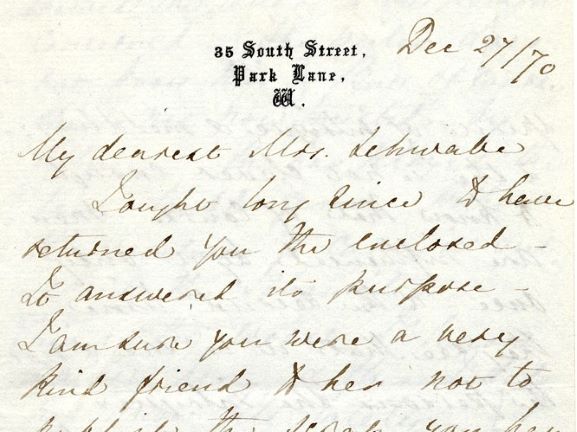 35 South Street,
Park Lane,
W.
Dec 27/70
My dearest Mrs. Schwabe
I ought long since to have
returned you the enclosed -
It answered its purpose -
I am sure you were a very
kind friend to her not to
publish the scrap you